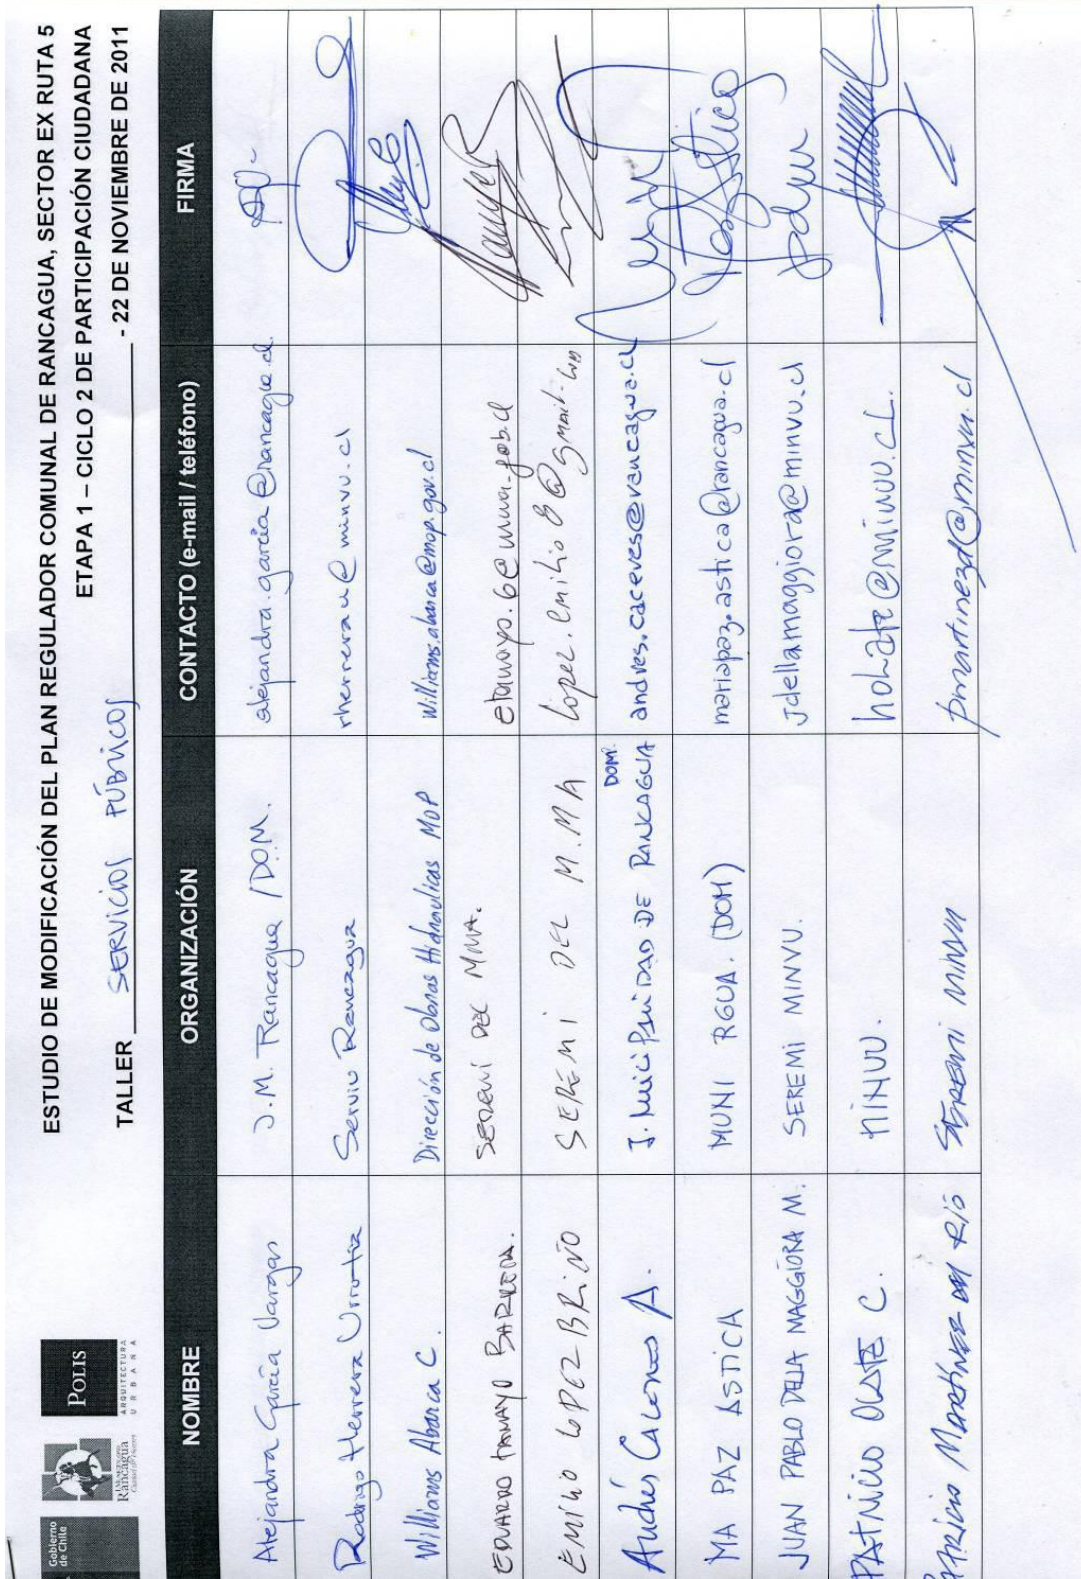 Gobierno
de Chile
Rancagua
POLIS
ARQUITECTURA
URBANA
ESTUDIO DE MODIFICACIÓN DEL PLAN REGULADOR COMUNAL DE RANCAGUA, SECTOR EX RUTA 5
ETAPA 1 – CICLO 2 DE PARTICIPACIÓN CIUDADANA
TALLER SERVICIOS PÚBLICOS - 22 DE NOVIEMBRE DE 2011
NOMBRE ORGANIZACIÓN CONTACTO (e-mail / teléfono) FIRMA
Alejandra García Vargas J.M. Rancagua /DOM. alejandra.garcia@rancagua.cl.
Rodrigo Herrera Urrutia Serviu Rancagua rherrerau@minvu.cl
Williams Abarca C. Dirección de Obras Hidraulicas MOP williams.abarca@mop.gov.cl
EDUARDO TAMAYO BARRERA. SEREMI DEL MMA. etamayo.6@mma.gob.cl
EMILIO LOPEZ BRIÑO SEREMI DEL M.M.A lopez.emilio8@gmail.com
Andrés A. DOM. DE RANCAGUA andres.caceres@rancagua.cl
MA PAZ ASTICA MUNI RGUA. (DOM) mariapaz.astica@rancagua.cl
JUAN PABLO DELLA MAGGIORA M. SEREMI MINVU. jdellamaggiora@minvu.cl
PATRICIO OLATE C. MINVU. holate@MINVU.CL.
MARTINEZ DEL RÍO SEREMI MINVU pmartinezd@minvu.cl